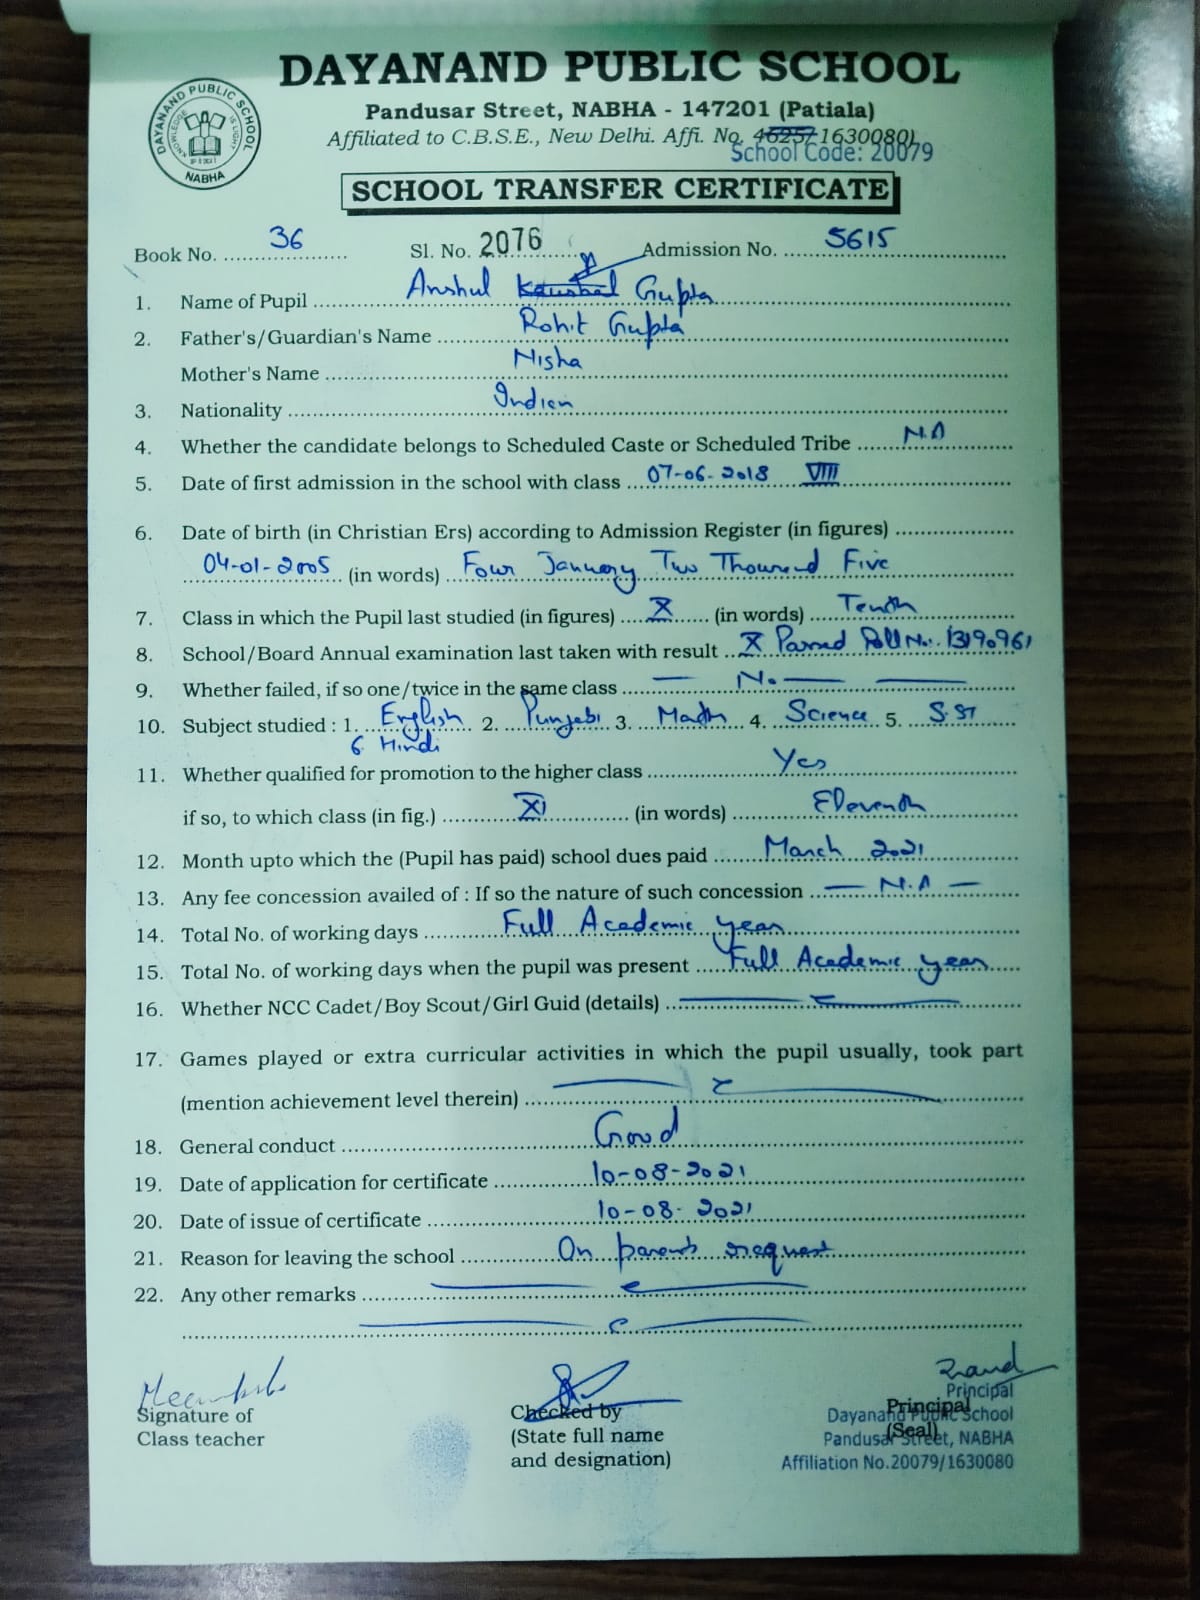 DAYANAND PUBLIC SCHOOL
Pandusar Street, NABHA - 147201 (Patiala)
Affiliated to C.B.S.E., New Delhi. Affi. No. 1630080
School Code: 20079
DAYANAND PUBLIC SCHOOL
KNOWLEDGE IS LIGHT
NABHA
SCHOOL TRANSFER CERTIFICATE
Book No. 36 Sl. No. 2076 Admission No. 5615
1. Name of Pupil Anshul Kaushal Gupta
2. Father's/Guardian's Name Rohit Gupta
Mother's Name Nisha
3. Nationality Indian
4. Whether the candidate belongs to Scheduled Caste or Scheduled Tribe N.A
5. Date of first admission in the school with class 07-06-2018 VIII
6. Date of birth (in Christian Ers) according to Admission Register (in figures)
04-01-2005 (in words) Four January Two Thousand Five
7. Class in which the Pupil last studied (in figures) X (in words) Tenth
8. School/Board Annual examination last taken with result X Passed Roll No. 13190961
9. Whether failed, if so one/twice in the same class — No — —
10. Subject studied : 1. English 2. Punjabi 3. Math 4. Science 5. S.ST
6. Hindi
11. Whether qualified for promotion to the higher class Yes
if so, to which class (in fig.) XI (in words) Eleventh
12. Month upto which the (Pupil has paid) school dues paid March 2021
13. Any fee concession availed of : If so the nature of such concession — N.A —
14. Total No. of working days Full Academic year
15. Total No. of working days when the pupil was present Full Academic year
16. Whether NCC Cadet/Boy Scout/Girl Guid (details)
17. Games played or extra curricular activities in which the pupil usually, took part
(mention achievement level therein)
18. General conduct Good
19. Date of application for certificate 10-08-2021
20. Date of issue of certificate 10-08-2021
21. Reason for leaving the school On parents request
22. Any other remarks
Signature of
Class teacher
Checked by
(State full name
and designation)
Principal
(Seal)
Principal
Dayanand Public School
Pandusar Street, NABHA
Affiliation No.20079/1630080